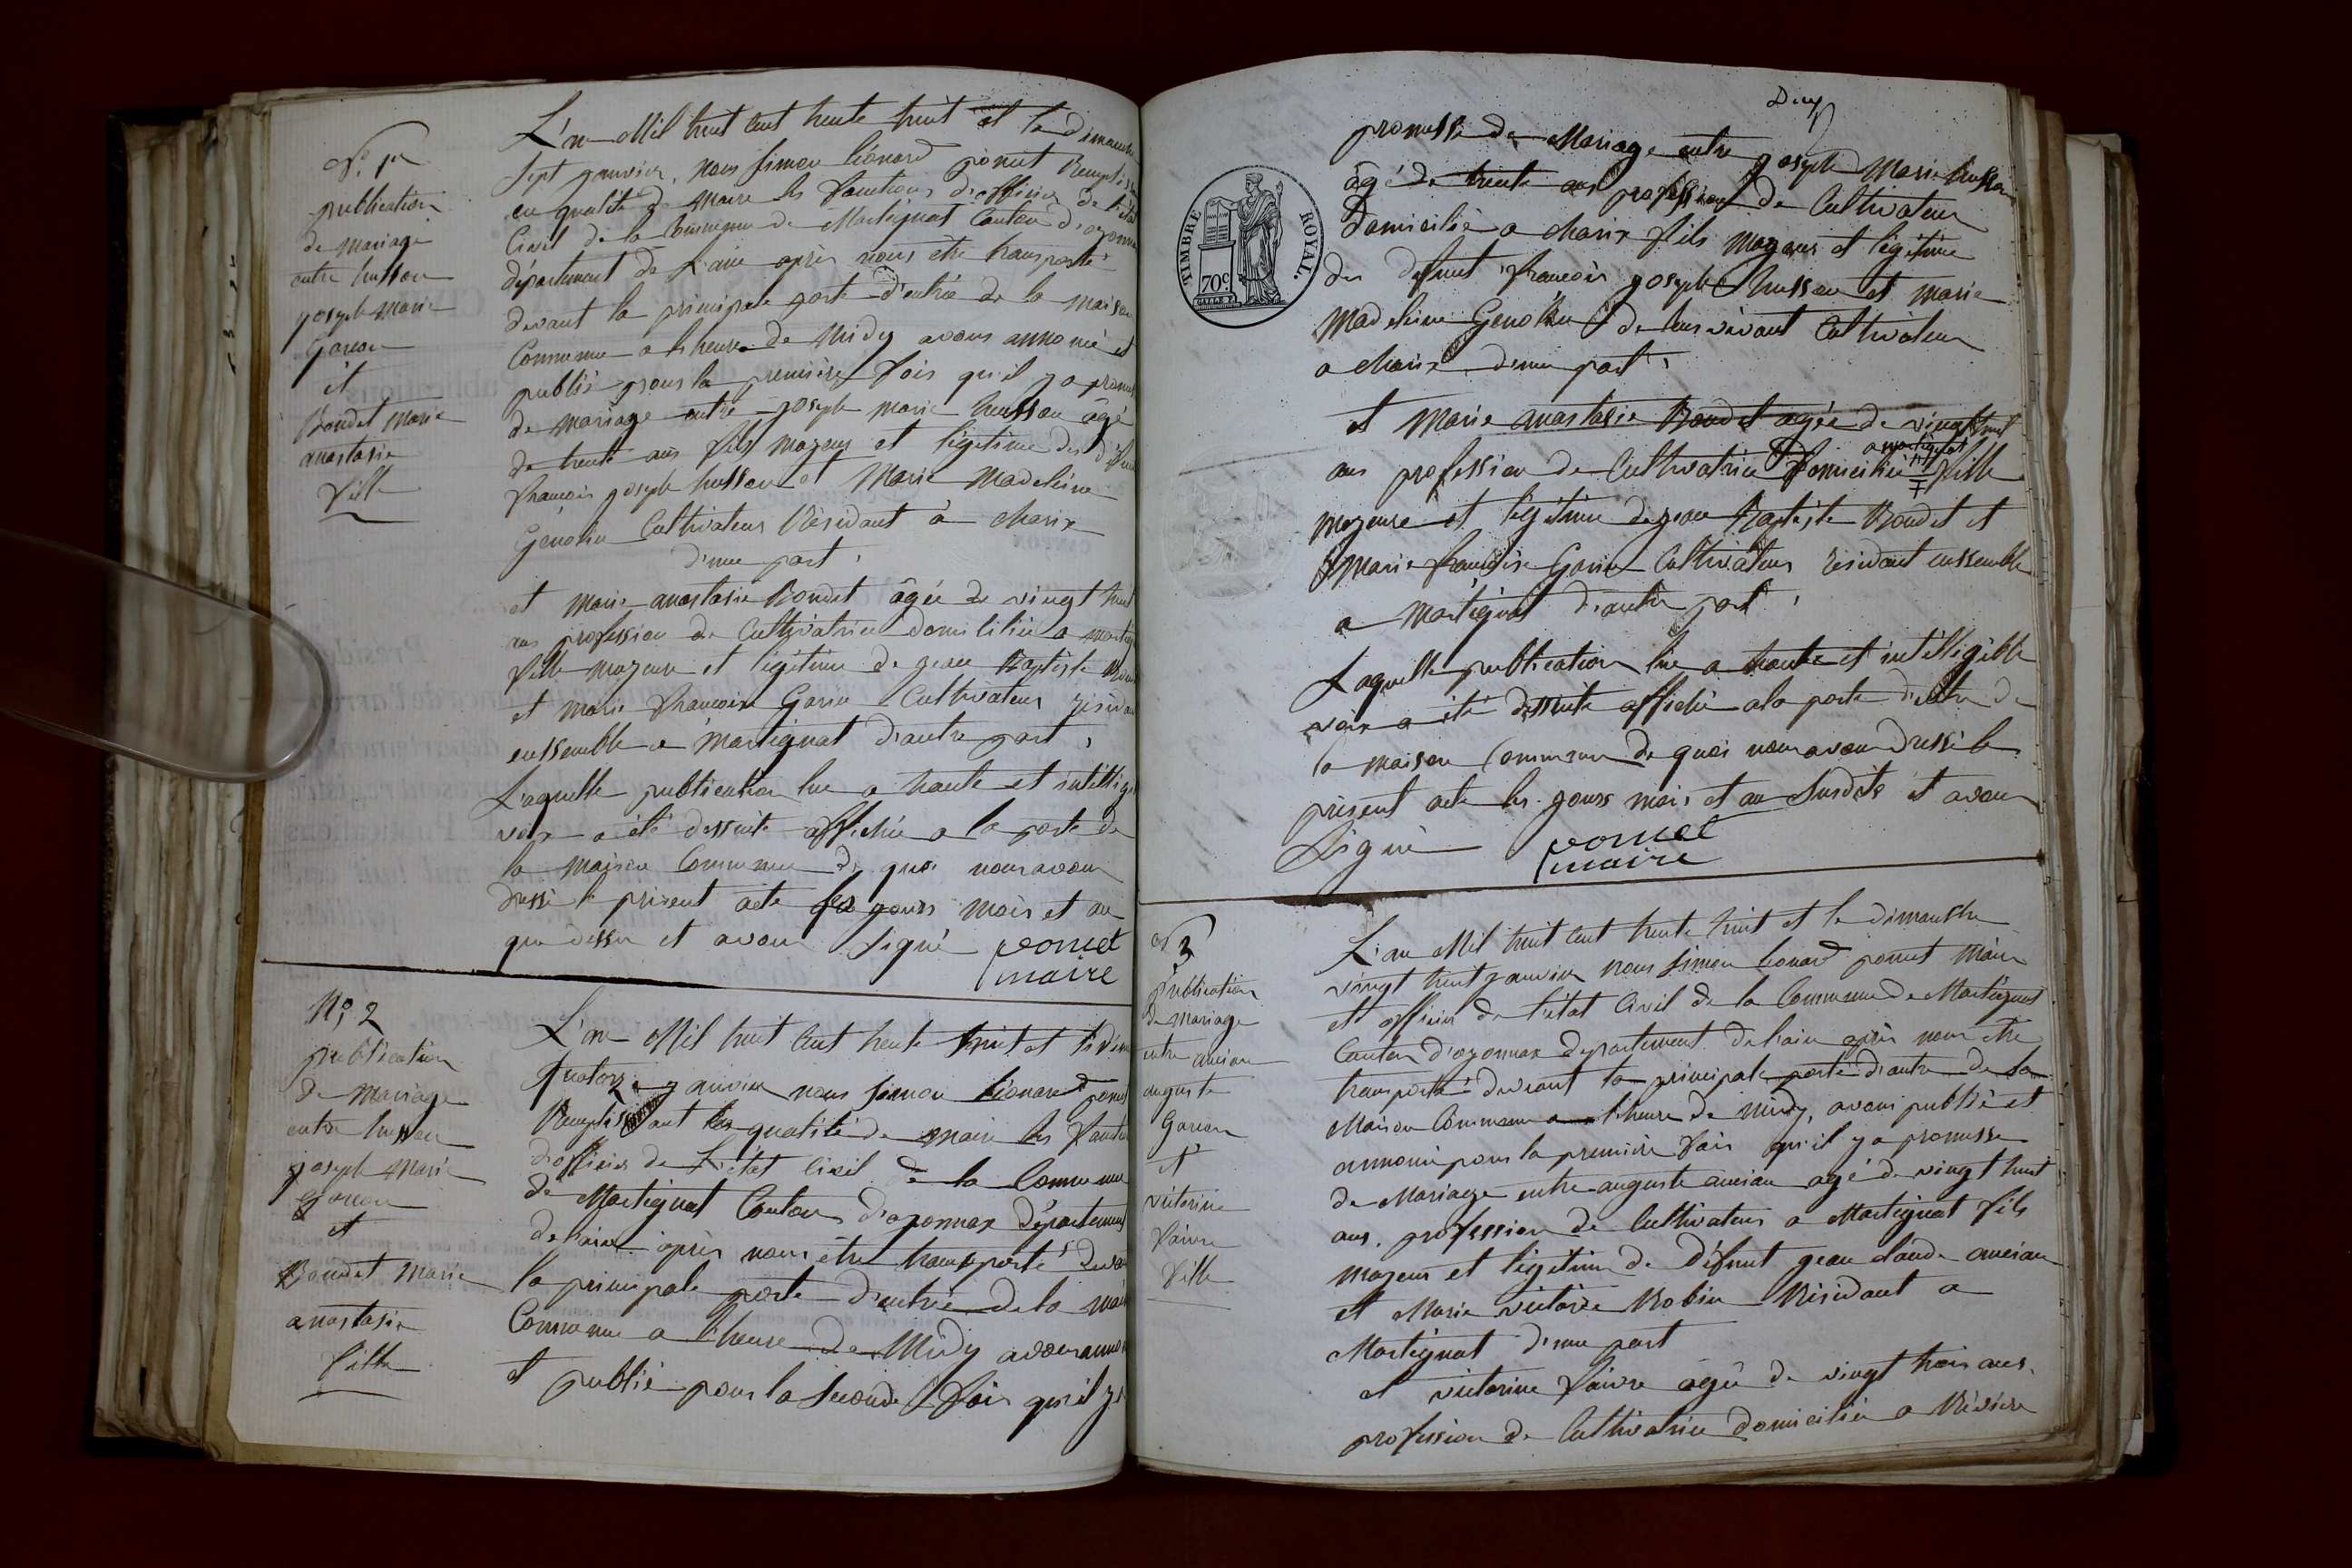 N°. 1er
publication
de mariage
entre husson
joseph marie
Garcon
et
Bondet Marie
anastasie
fille
L'an Mil huit cent trente huit et le dimanche
sept janvier, nous simon léonard ponset Remplissant
en qualité de Maire les fonctions d'officier de l'état
Civil de la Commune de Martignat Canton d'oyonnax
département de L'ain après nous etre transporté
devant la principale porte d'entrée de la maison
Commune a l'heure de Midy avons annoncé et
publié pour la première fois qu'il y a promesse
de mariage entre joseph marie husson agé
de trente ans fils majeur et légitime des défunt
francois joseph husson et Marie Madeleine
Genolin Cultivateur Résidant à charix
d'une part,
et marie anastasie Bondet âgée de vingt huit
ans profession de Cultivatrice domiciliée a martignat
fille majeure et légitime de jean Baptiste
et marie francoise Gorin Cultivateur résidant
enssemble a Martignat d'autre part,
Laquelle publication lue a haute et intelligible
voix a été dessuite affichée a la porte de
la maison Commune de quoi nous avons
dressé le présent acte les jours mois et an
que dessus et avons signé ponset
maire
N°, 2
publication
de mariage
entre husson
joseph Marie
Garcon
et
Bondet Marie
anastasie
fille
L'an Mil huit cent trente huit et le
quatorze janvier nous simon léonard ponset
Remplissant en qualité de maire les
d'officier de L'état civil de la Commune
de Martignat Canton d'oyonnax Département
de l'ain après nous être transporté devant
la principale porte d'entrée de la
Commune a l'heure de Midy avons
et publié pour la seconde fois qu'il y a
Deux
TIMBRE ROYAL.
70c
promesse de Mariage entre joseph Marie husson
âgé de trente ans profession de Cultivateur
domicilié a charix fils majeur et légitime
des defunt francois joseph husson et marie
Madeleine Genolin de leur vivant Cultivateur
a charix d'une part,
et Marie anastasie Bondet agée de vingt huit
a martignat
ans profession de Cultivatrice domiciliée fille
majeure et légitime de jean Baptiste Bondet et
Marie francoise Gorin Cultivateur résidant enssemble
a Martignat d'autre part,
Laquelle publication lue a haute et intelligible
voix a été dessuite affichée a la porte d'entre de
la maison Commune de quoi nous avons dressé le
présent acte les jours mois et an susdits et avons
Signé ponset
maire
N° 3
publication
de mariage
entre ancian
auguste
Garcon
et
victorine
faivre
fille
L'an Mil huit cent trente huit et le dimanche
vingt huit janvier nous simon léonard ponset Maire
et officier de l'état Civil de la Commune de Martignat
Canton d'oyonnax departement de l'ain après nous etre
transporté devant la principale porte d'entre de la
Maison Commune a l'heure de midy, avons publié et
annoncé pour la première fois qu'il y a promesse
de Mariage entre auguste ancian agé de vingt huit
ans, profession de Cultivateur a Martignat fils
majeur et légitime de défunt jean claude ancian
et Marie victoire Robin Résidant a
Martignat d'une part
et victorine faivre agée de vingt trois ans
profession de Cultivatrice domiciliée a